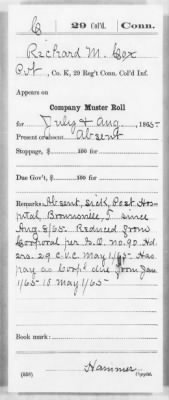 C 29 Col'd. Conn.
Richard M. Cox
Pvt, Co. K, 29 Reg't Conn. Col'd Inf.
Appears on
Company Muster Roll
for July & Aug, 1865.
Present or absent Absent
Stoppage, $ 100 for
Due Gov't, $ 100 for
Remarks: Absent, sick, Post Hos-
pital, Brownsville, T since
Aug. 8/65. Reduced from
Corporal per S.O. no. 90 Hd.
qrs. 29 C.V.C. May 1/65. Has
pay as Corpl due from Jan
1/65 to May 1/65
Book mark:
Hammer
(858) Copyist.